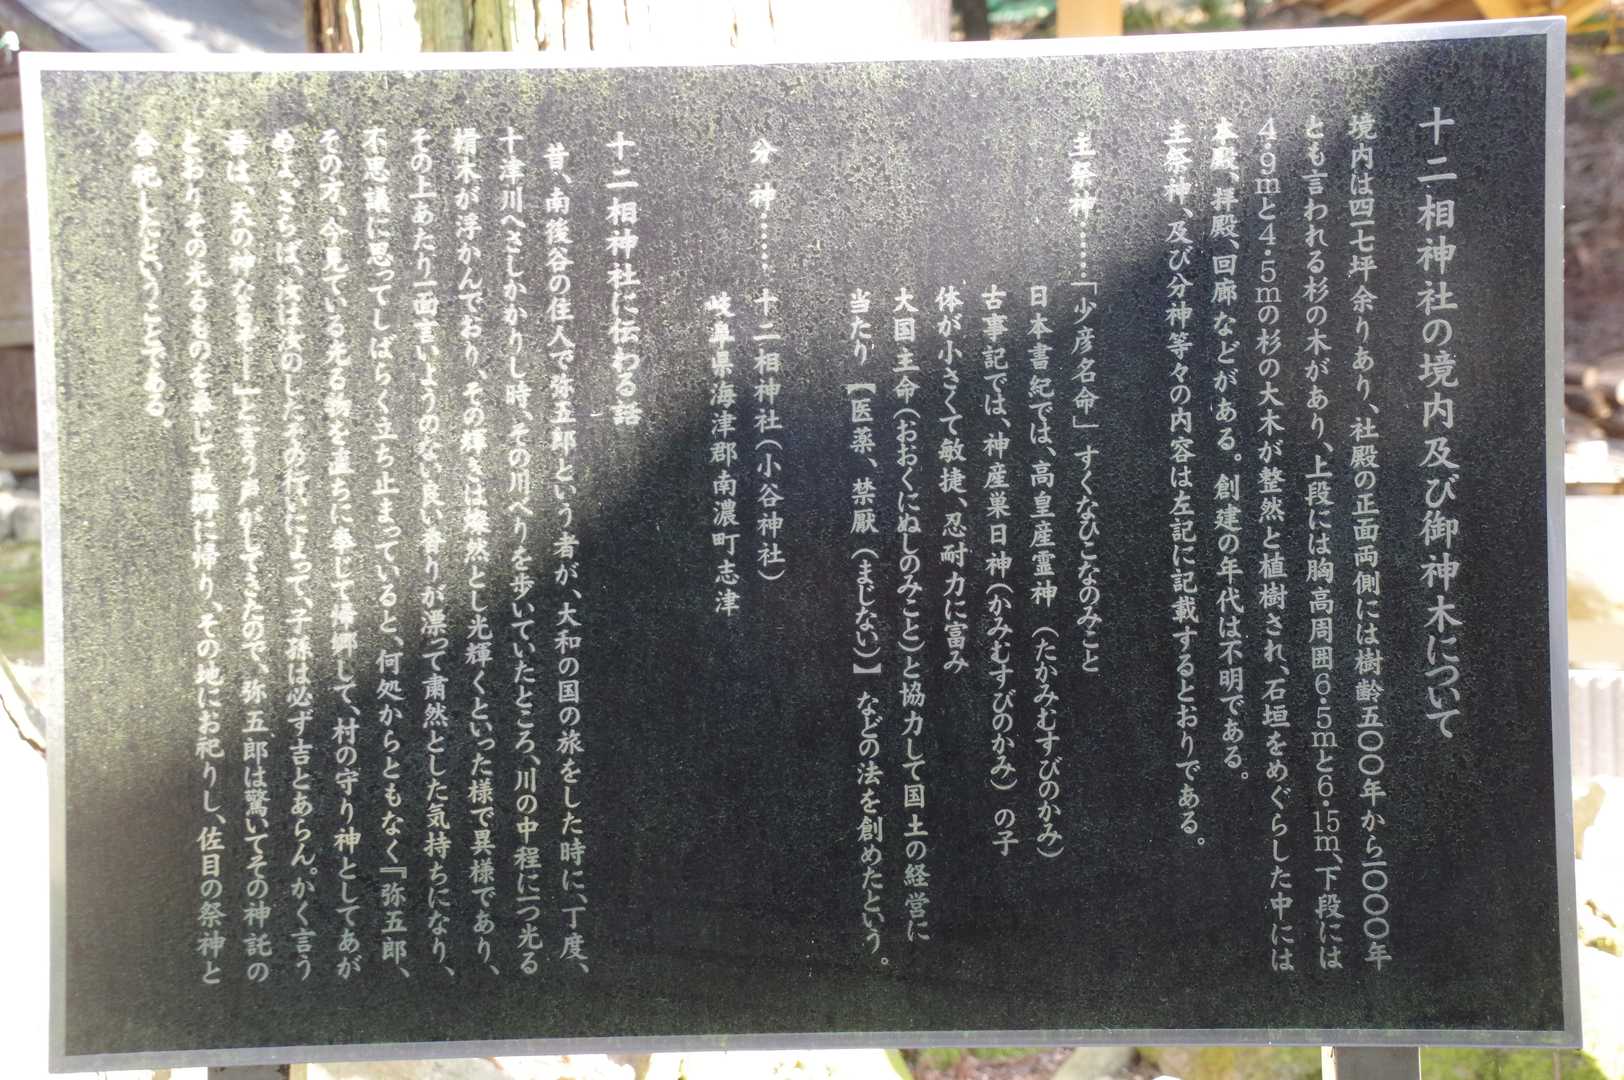 十二相神社の境内及び御神木について
境内は四一七坪余りあり、社殿の正面両側には樹齢五〇〇年から一〇〇〇年
とも言われる杉の木があり、上段には胸高周囲6・5mと6・15m、下段には
4・9mと4・5mの杉の大木が整然と植樹され、石垣をめぐらした中には
本殿、拝殿、回廊などがある。創建の年代は不明である。
主祭神、及び分神等々の内容は左記に記載するとおりである。
主祭神……「少彦名命」すくなひこなのみこと
日本書紀では、高皇産霊神（たかみむすびのかみ）
古事記では、神産巣日神（かみむすびのかみ）の子
体が小さくて敏捷、忍耐力に富み
大国主命（おおくにぬしのみこと）と協力して国土の経営に
当たり【医薬、禁厭（まじない）】などの法を創めたという。
分　神……　十二相神社（小谷神社）
岐阜県海津郡南濃町志津
十二相神社に伝わる話
昔、南後谷の住人で弥五郎という者が、大和の国の旅をした時に、丁度、
十津川へさしかかりし時、その川べりを歩いていたところ、川の中程に一つ光る
楕木が浮かんでおり、その輝きは燦然とし光輝くといった様で異様であり、
その上あたり一面言いようのない良い香りが漂って粛然とした気持ちになり、
不思議に思ってしばらく立ち止まっていると、何処からともなく『弥五郎、
その方、今見ている光る物を直ちに奉じて帰郷して、村の守り神としてあが
めよ、さらば、汝は汝のしたその行いによって、子孫は必ず吉とあらん。かく言う
吾は、天の神なるぞー』と言う声がしてきたので、弥五郎は驚いてその神託の
とおりその光るものを奉じて故郷に帰り、その地にお祀りし、佐目の祭神と
合祀したということである。